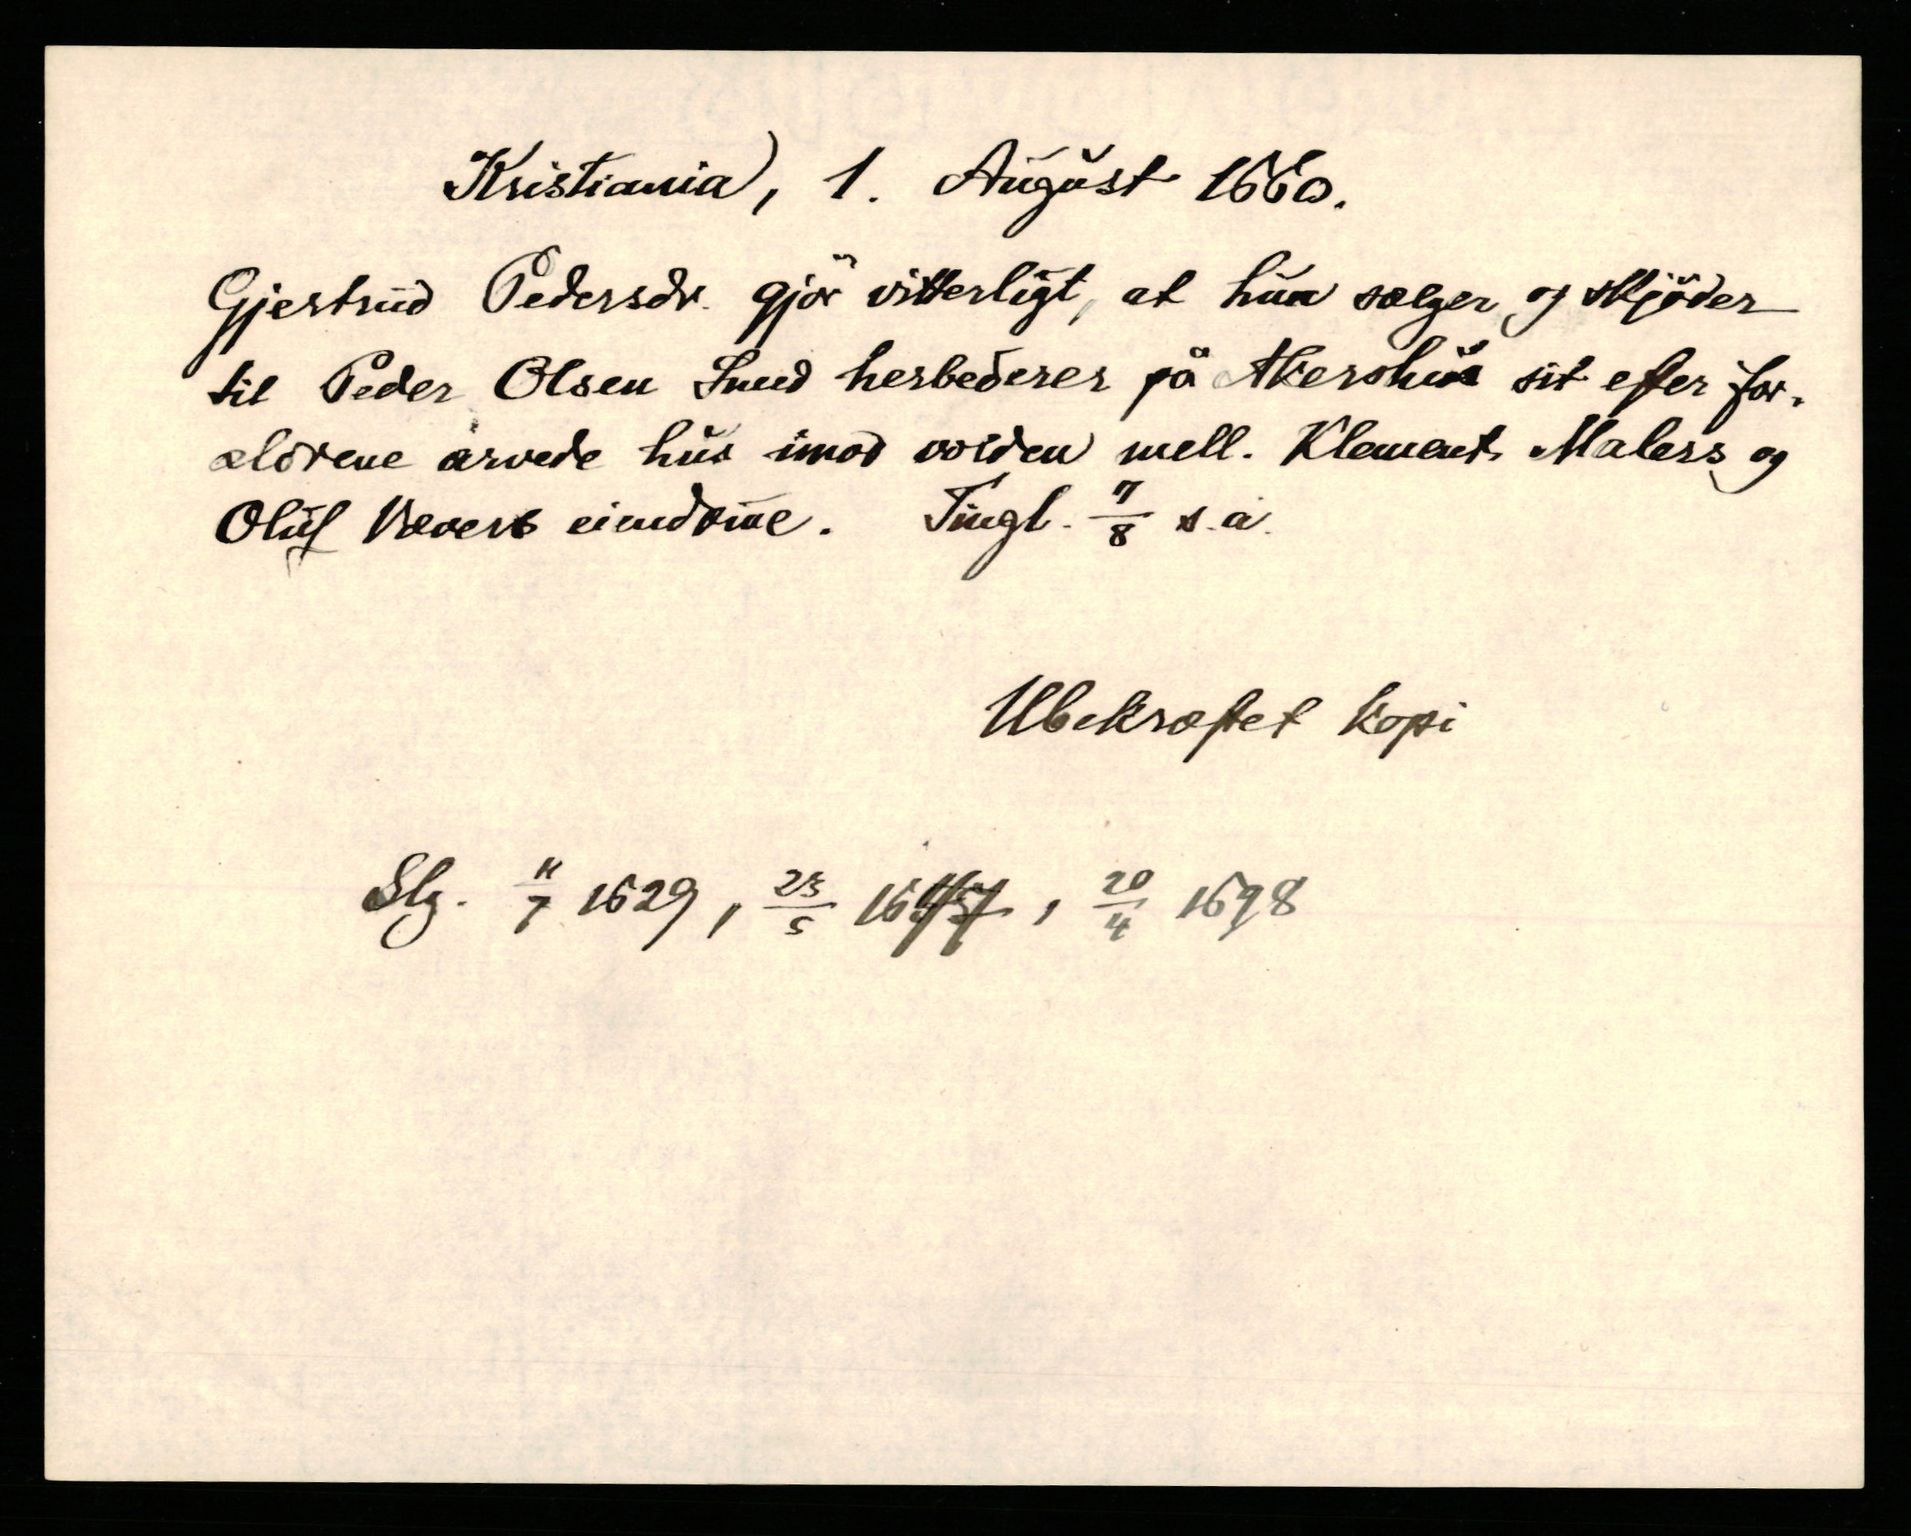 Kristiania, 1. August 1660.
Gjertrud Pedersdr. gjör vitterligt, at hun sælger og skjöder
til Peder Olsen Smed herbederer på Akershus sit efter for-
ældrene arvede hus imod volden mell. Klement Malers og
Oluf Vævers eiendome. Tingl. 7/8 s. a.
Ubekræftet kopi
Slg. 11/7 1629, 23/5, 20/4 1698